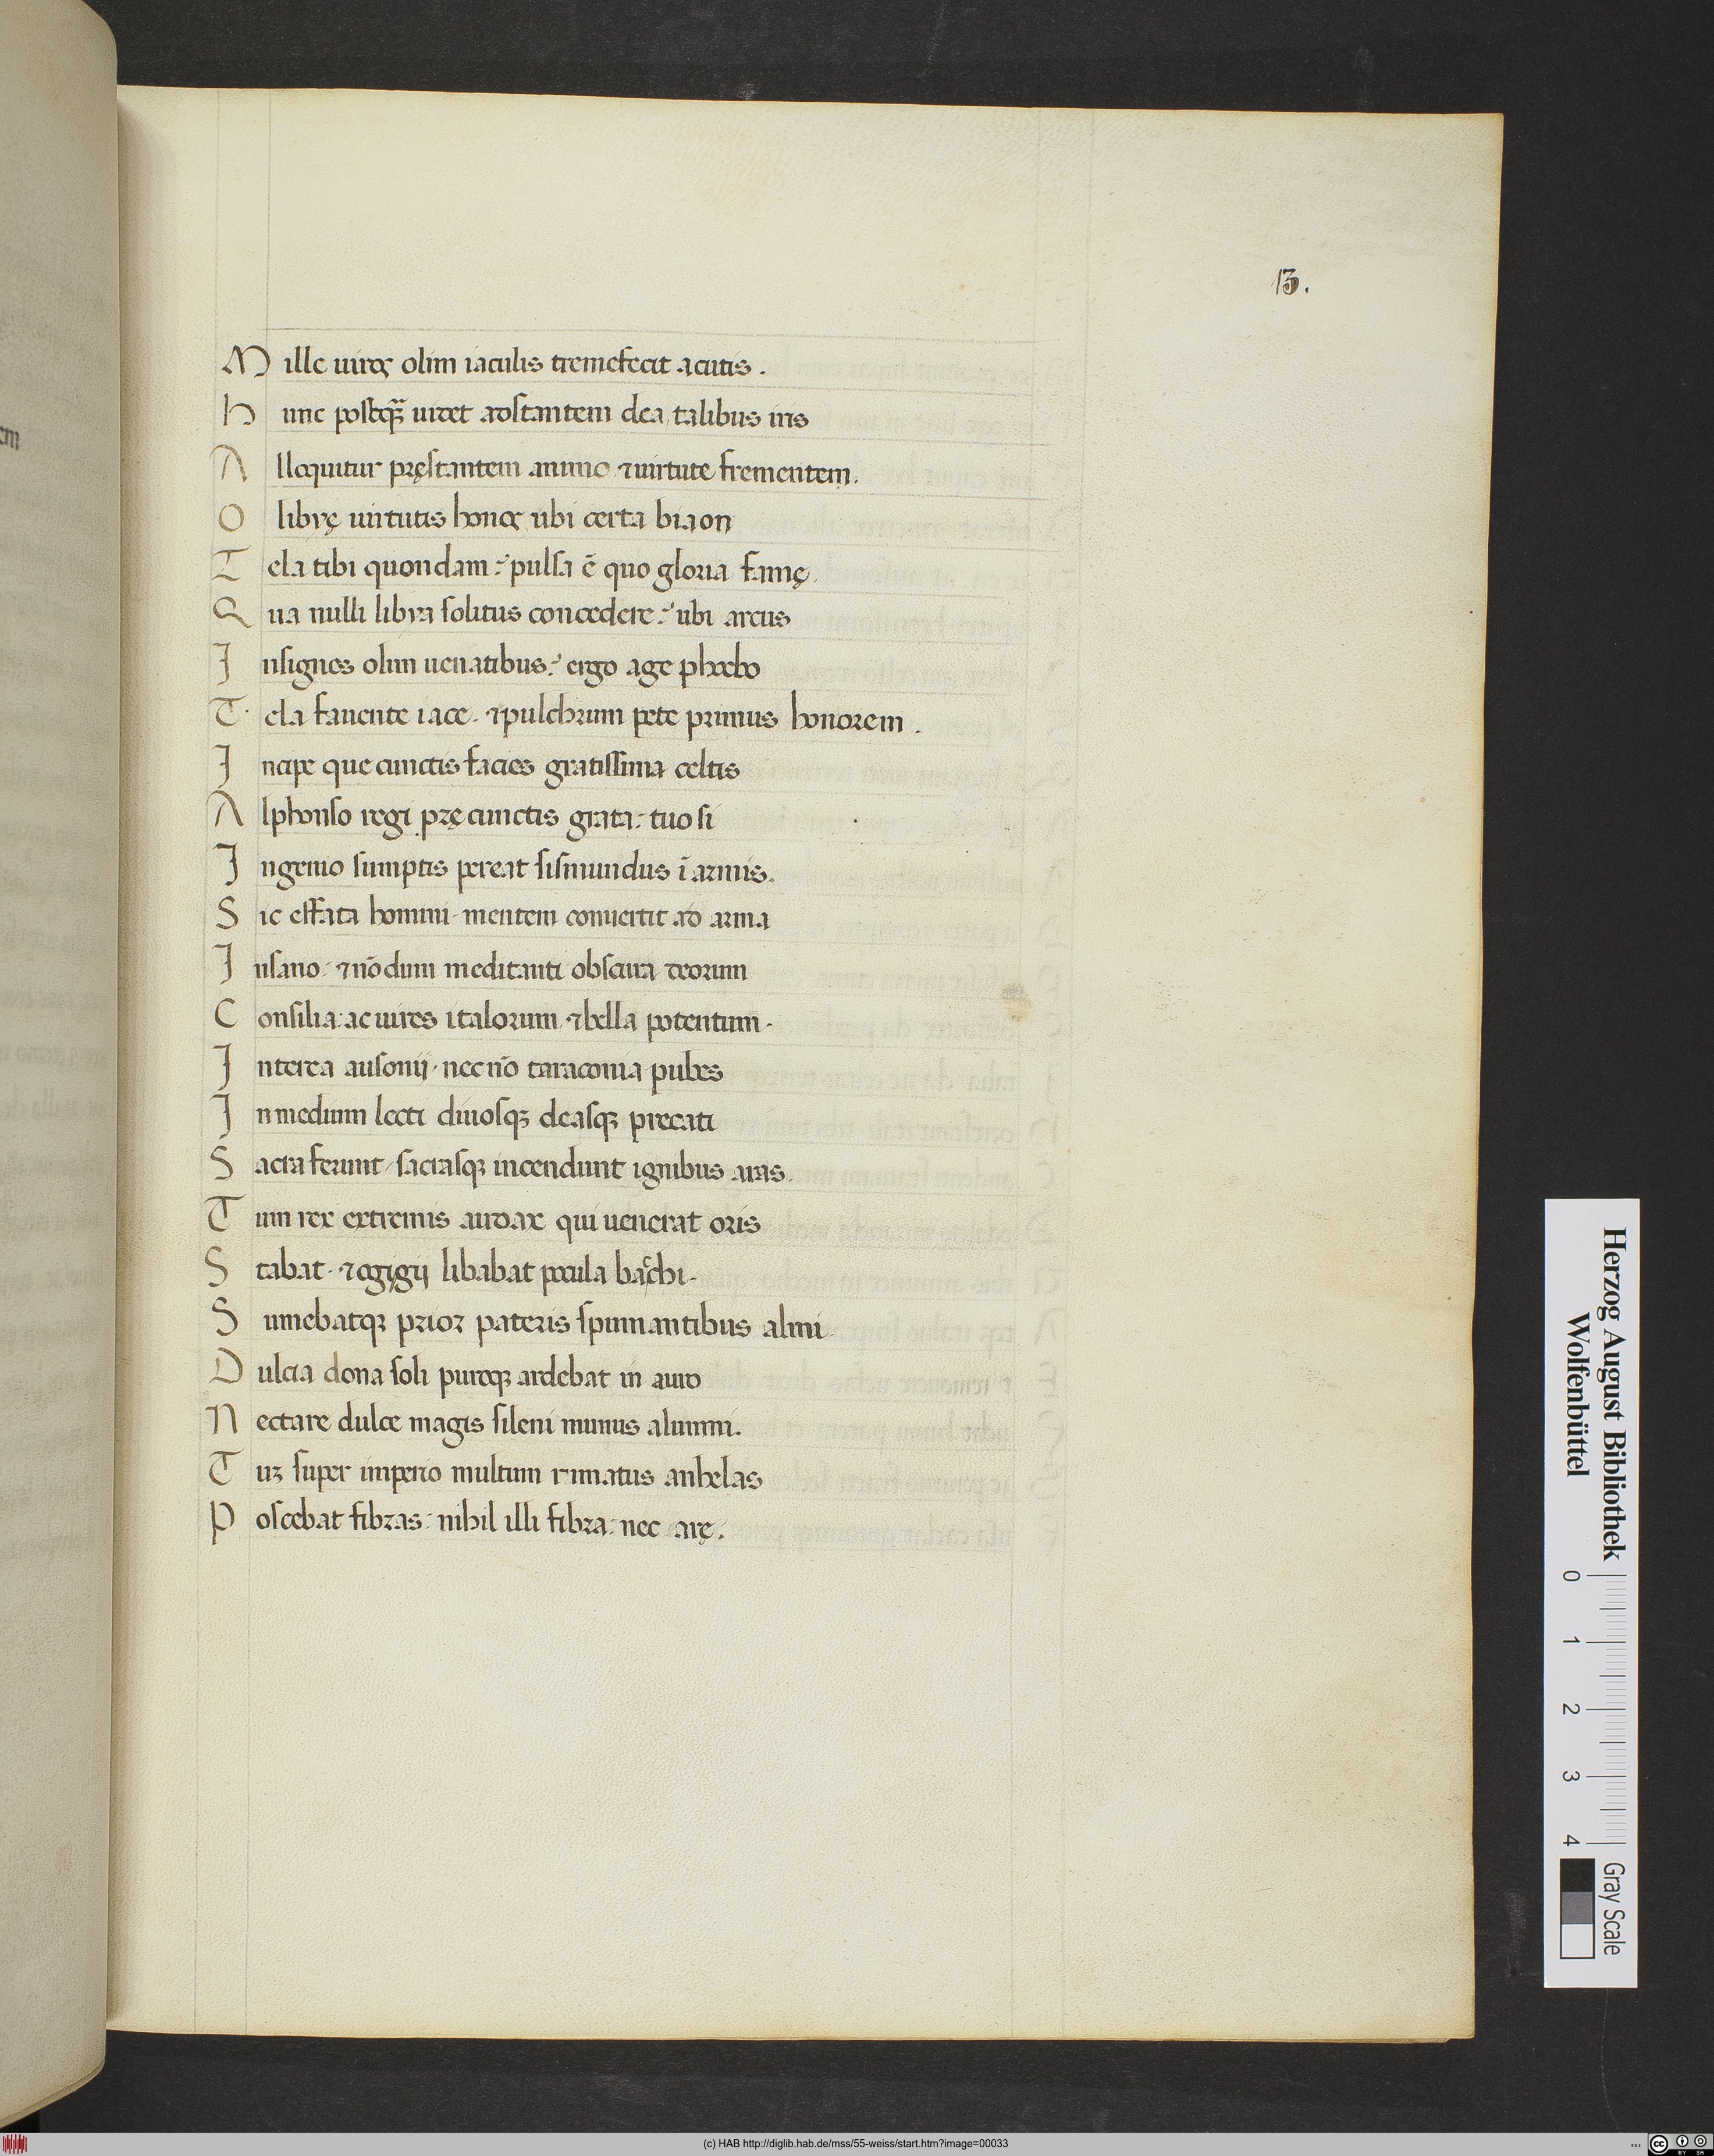 13.
Mille uiros olim iaculis tremefecit acutis.
hunc postq̃ uidet adstantem dea, talibus iris
Alloquitur pręstantem animo ⁊ uirtute frementem.
O librę uirtutis honos ubi certa biaon
Tela tibi quondam: pulsa ē quo gloria famę.
Qua nulli libra solitus concedere: ubi arcus
Insignes olim uenatibus: ergo age phoebo
Tela fauente iace. ⁊ pulchrum pete primus honorem.
Incipe que cunctis facies gratissima celtis
Alphonso regi pręcunctis grata: tuo si
Ingenio sumptis pereat sismundus ī armis.
Sic effata homini. mentem conuertit ad arma
Insano: ⁊ nōdum meditanti obscura deorum
Consilia: ac uires italorum. ⁊ bella potentum.
Interea ausonij. nec nō taraconia pubes
In medium lecti diuosq; deasq; precati
Sacra ferunt/ sacrasq; incendunt ignibus aras.
Tum rex extremis audax qui uenerat oris
Stabat. ⁊ ogigij libabat pocula bacchi.
Sumebatq; prior pateris spumantibus almi.
Dulcia dona soli puroq; ardebat in auro
Nectare dulce magis sileni munus alumni.
Tuz super imperio multum rimatus anhelas
Poscebat fibras: nihil illi fibra: nec arę.
Herzog August Bibliothek
Wolfenbüttel
0 1 2 3 4
Gray Scale
(c) HAB http://diglib.hab.de/mss/55-weiss/start.htm?image=00033